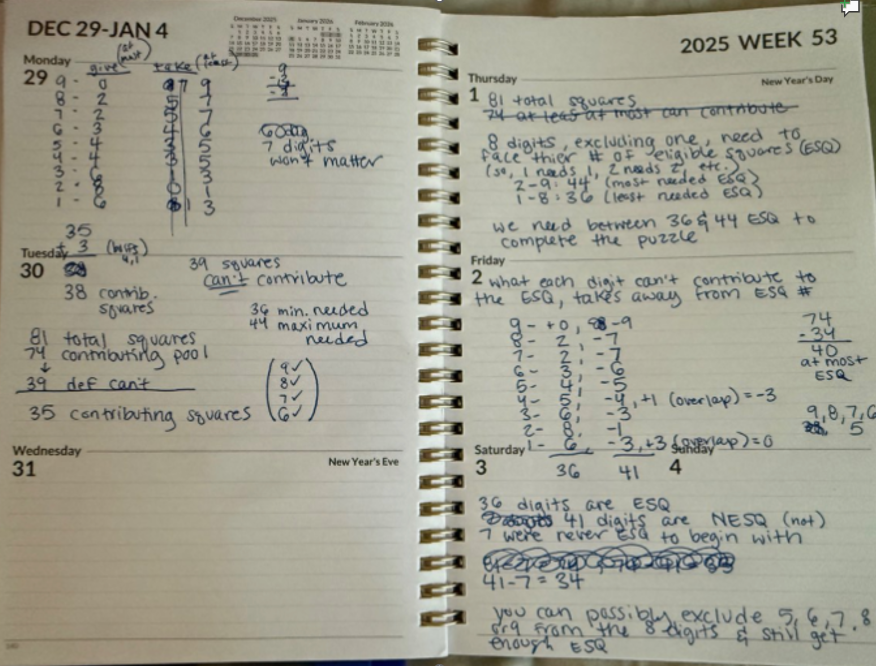 DEC 29-JAN 4
December 2025
January 2026
February 2026
Monday
29
give (at most)
take (at least)
9 - 0 9
8 - 2 7
7 - 2 7
6 - 3 6
5 - 4 5
4 - 4 5
3 - 6 3
2 - 8 1
1 - 6 3
9
7 digits
won't matter
35
+ 3
Tuesday
30
38 contrib.
squares
39 squares
can't contribute
36 min. needed
44 maximum
needed
81 total squares
74 contributing pool
↓
39 def can't
35 contributing squares
9✓
8✓
7✓
6✓
Wednesday
31
New Year's Eve
2025 WEEK 53
Thursday
1
New Year's Day
81 total squares
74 at least at most can contribute
8 digits, excluding one, need to
face thier # of eligible squares (ESQ)
(so, 1 needs 1, 2 needs 2, etc.)
2-9: 44 (most needed ESQ)
1-8: 36 (least needed ESQ)
we need between 36 & 44 ESQ to
complete the puzzle
Friday
2
what each digit can't contribute to
the ESQ, takes away from ESQ #
9- +0, -9
8- 2, -7
7- 2, -7
6- 3, -6
5- 4, -5
4- 5, -4, +1 (overlap) = -3
3- 6, -3
2- 8, -1
1- 6, -3, +3 (overlap) = 0
36 41
74
- 34
40
at most
ESQ
9, 8, 7, 6
5
Saturday
3
Sunday
4
36 digits are ESQ
41 digits are NESQ (not)
7 were never ESQ to begin with
41-7 = 34
you can possibly exclude 5, 6, 7, 8
or 9 from the 8 digits & still get
enough ESQ